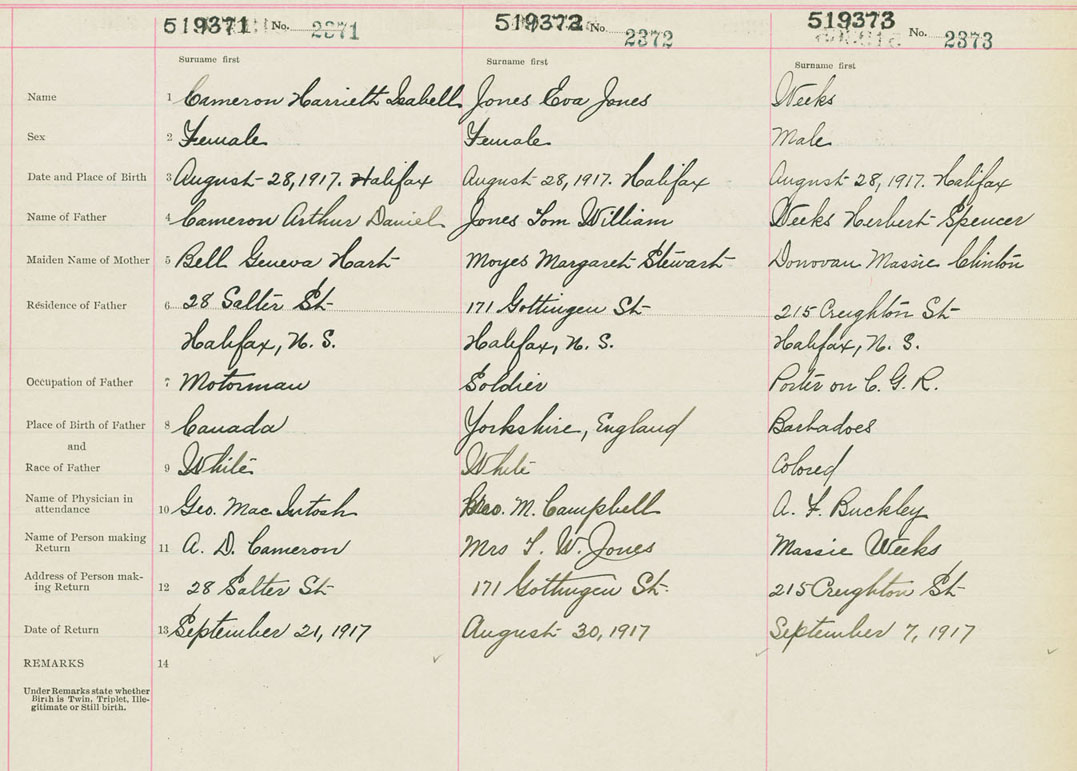 519371 No. 2371 519372 No. 2372 519373 No. 2373
Surname first Surname first Surname first
Name 1 Cameron Harrieth Isabell Jones Eva Jones Weeks
Sex 2 Female Female Male
Date and Place of Birth 3 August 28, 1917. Halifax August 28, 1917. Halifax August 28, 1917. Halifax
Name of Father 4 Cameron Arthur Daniel Jones Tom William Weeks Herbert Spencer
Maiden Name of Mother 5 Bell Geneva Hart Moyes Margaret Stewart Donovan Massie Clinton
Residence of Father 6 28 Salter St 171 Gottingen St 215 Creighton St
Halifax, N. S. Halifax, N. S. Halifax, N. S.
Occupation of Father 7 Motorman Soldier Porter on C. G. R.
Place of Birth of Father 8 Canada Yorkshire, England Barbadoes
and
Race of Father 9 White White Colored
Name of Physician in
attendance 10 Geo. MacIntosh Geo. M. Campbell A. F. Buckley
Name of Person making
Return 11 A. D. Cameron Mrs T. W. Jones Massie Weeks
Address of Person mak-
ing Return 12 28 Salter St 171 Gottingen St. 215 Creighton St
Date of Return 13 September 21, 1917 August 30, 1917 September 7, 1917
REMARKS 14
Under Remarks state whether
Birth is Twin, Triplet, Ille-
gitimate or Still birth.